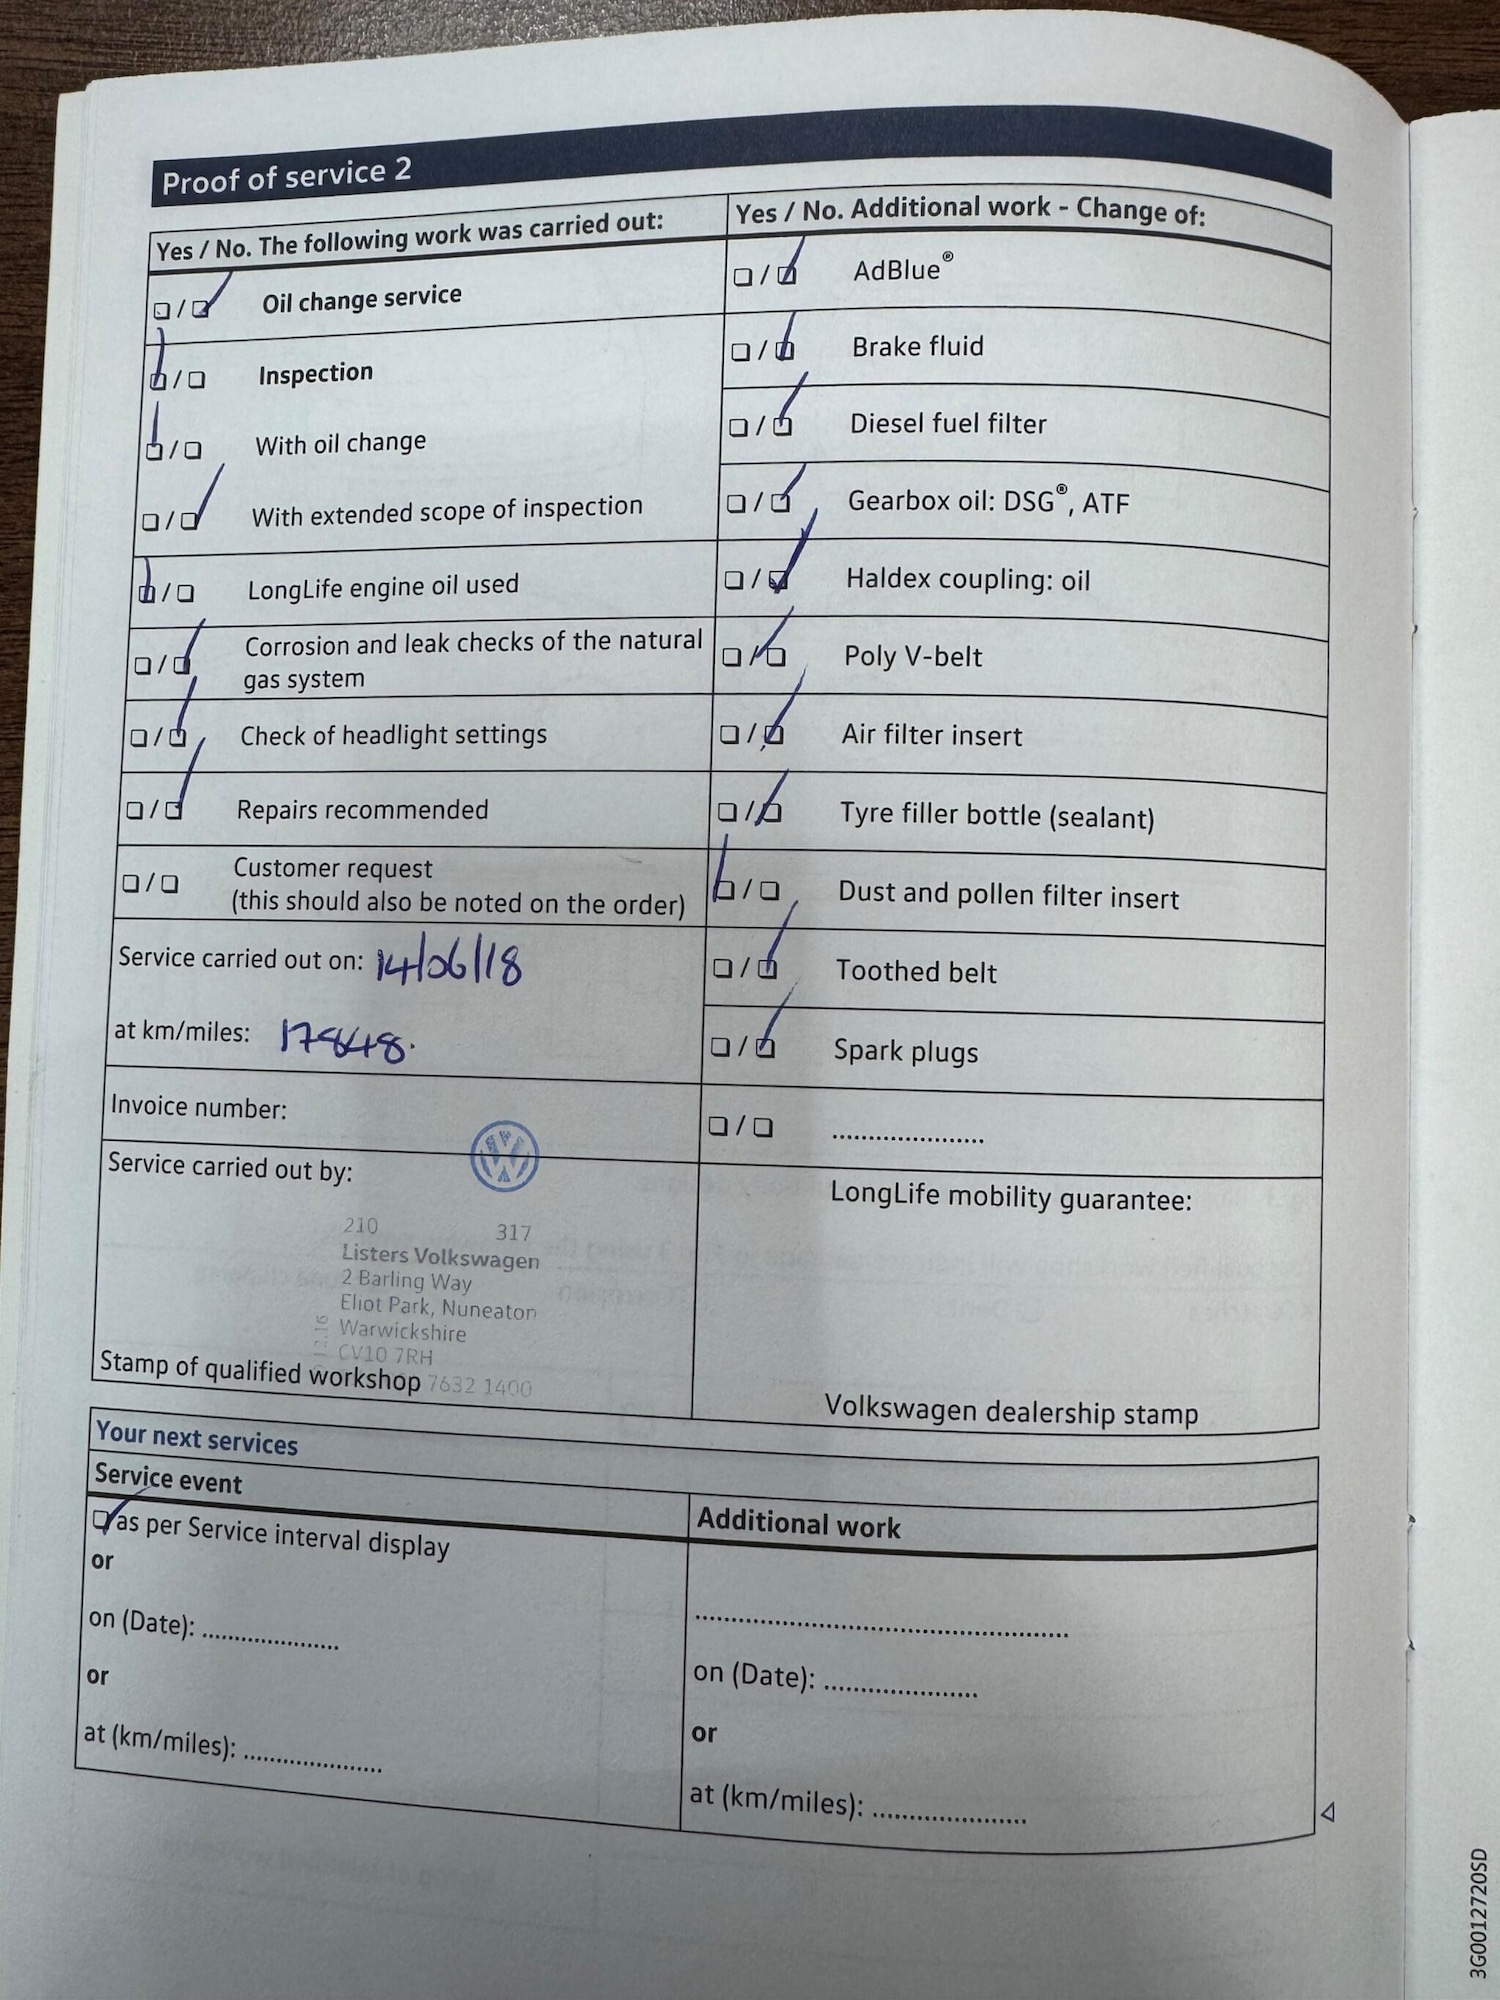 Proof of service 2
Yes / No. The following work was carried out:
❏ / ❏ Oil change service
❏ / ❏ Inspection
❏ / ❏ With oil change
❏ / ❏ With extended scope of inspection
❏ / ❏ LongLife engine oil used
❏ / ❏ Corrosion and leak checks of the natural
gas system
❏ / ❏ Check of headlight settings
❏ / ❏ Repairs recommended
❏ / ❏ Customer request
(this should also be noted on the order)
Service carried out on: 14/06/18
at km/miles: 17848.
Invoice number:
Service carried out by:
210 317
Listers Volkswagen
2 Barling Way
Eliot Park, Nuneaton
Warwickshire
CV10 7RH
7632 1400
12.16
Stamp of qualified workshop
Yes / No. Additional work - Change of:
❏ / ❏ AdBlue®
❏ / ❏ Brake fluid
❏ / ❏ Diesel fuel filter
❏ / ❏ Gearbox oil: DSG®, ATF
❏ / ❏ Haldex coupling: oil
❏ / ❏ Poly V-belt
❏ / ❏ Air filter insert
❏ / ❏ Tyre filler bottle (sealant)
❏ / ❏ Dust and pollen filter insert
❏ / ❏ Toothed belt
❏ / ❏ Spark plugs
❏ / ❏ ......................
LongLife mobility guarantee:
Volkswagen dealership stamp
Your next services
Service event
❏ as per Service interval display
or
on (Date): ....................
or
at (km/miles): ....................
Additional work
......................................................
on (Date): ......................
or
at (km/miles): ......................
3G0012720SD